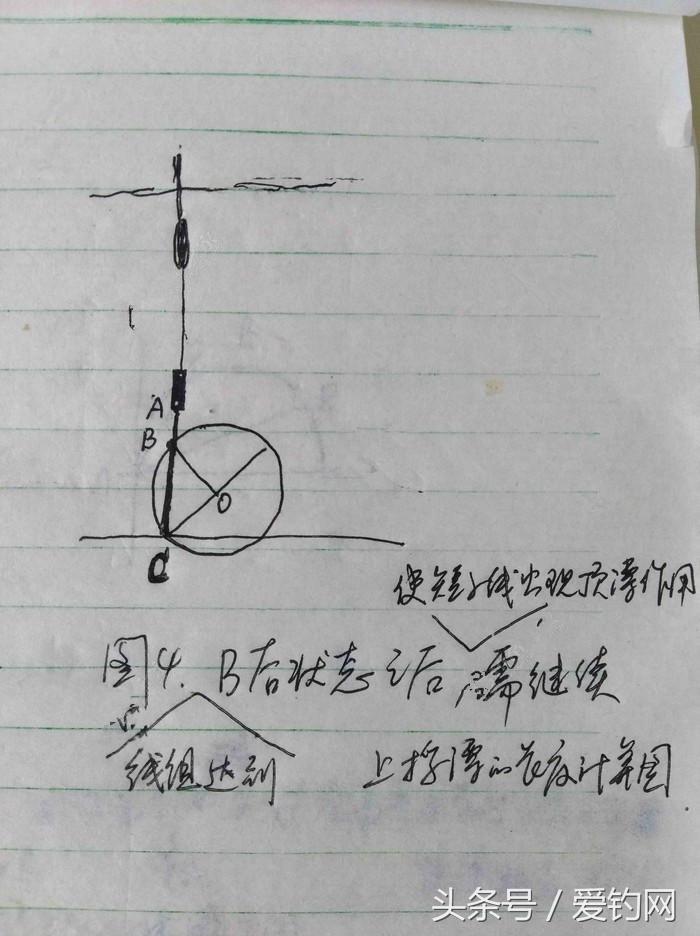 A
B
O
C
使短子线出现顶漂作用
图4. B后状态之后 需继续
线组达到
上捋漂的长度计算图
头条号 / 爱钓网